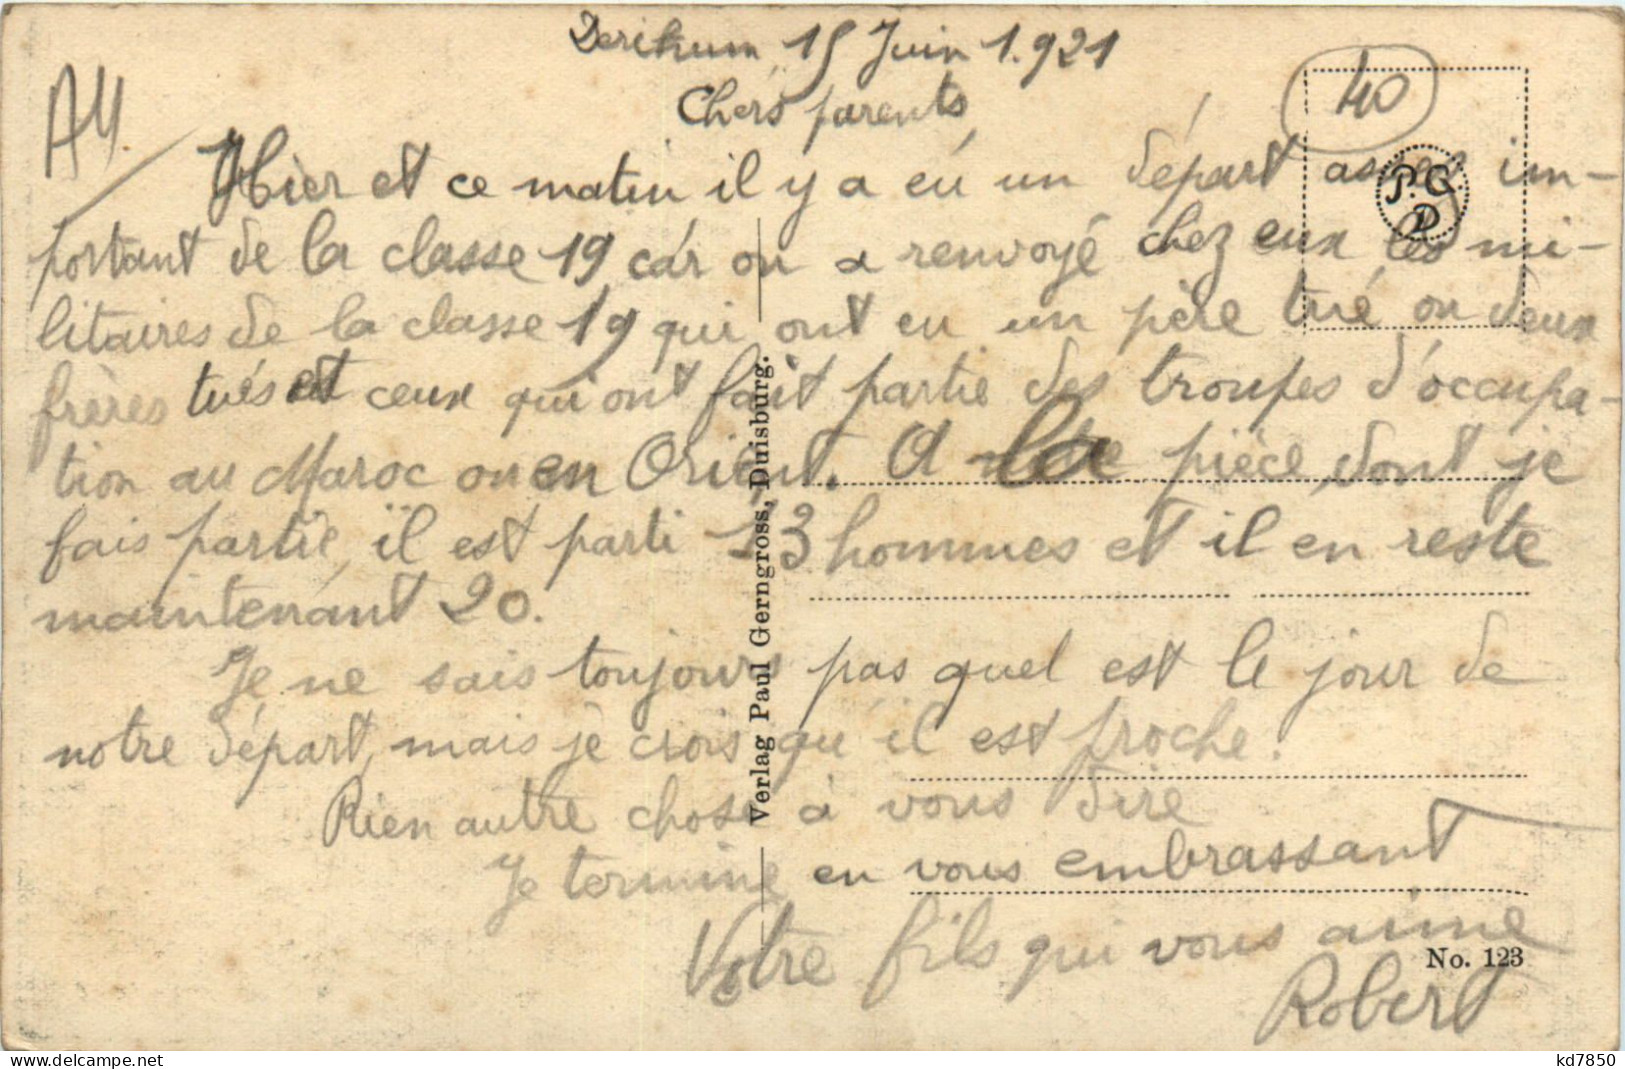 Derikum, 15 Juin 1.921
40
Chers parents
A4.
Hier et ce matin il y a eu un départ assez im-
P.G.
D
portant de la classe 19 car on a renvoyé chez eux les mi-
litaires de la classe 19 qui ont eu un père tué ou deux
frères tués et ceux qui ont fait partie des troupes d'occupa-
tion au Maroc ou en Orient. A la pièce, dont je
fais partie, il est parti 13 hommes et il en reste
maintenant 20.
Je ne sais toujours pas quel est le jour de
notre départ, mais je crois qu'il est proche.
Rien autre chose à vous dire
Je termine en vous embrassant
Votre fils qui vous aime
Robert
Verlag Paul Gerngross, Duisburg.
No. 123
kd7850